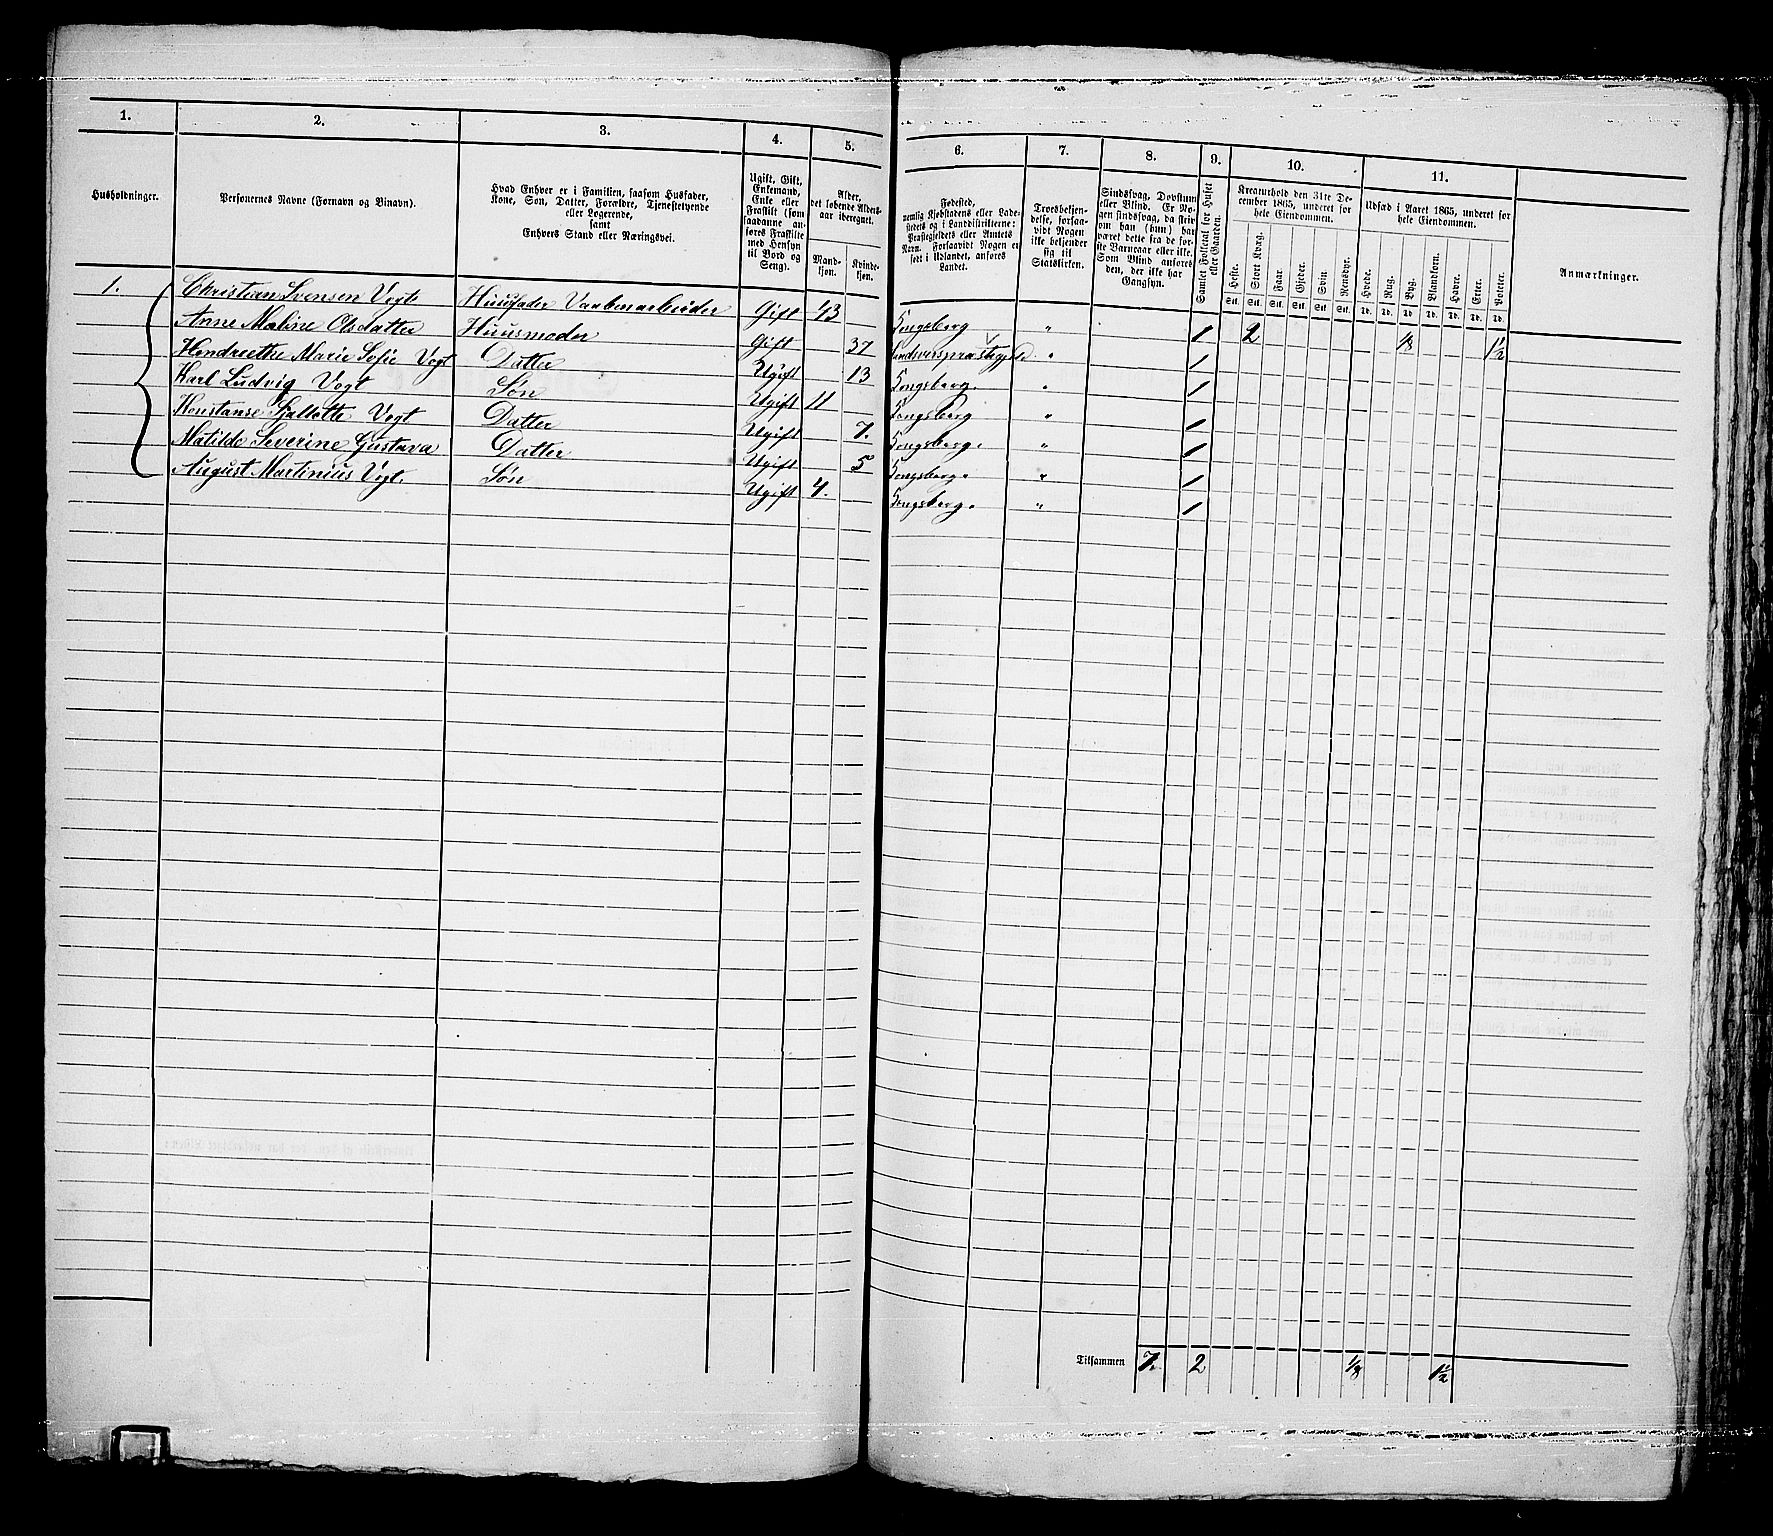 1. 2. 3. 4. 5. 6. 7. 8. 9. 10. 11.
Husholdninger.
Personernes Navne (Fornavn og Binavn).
Hvad Enhver er i Familien, saasom Husfader,
Kone, Søn, Datter, Forældre, Tjenestetyende
eller Logerende,
samt
Enhvers Stand eller Næringsvei.
Ugift, Gift,
Enkemand,
Enke eller
Fraskilt (som
saadanne an-
føres Fraskilte
med Hensyn
til Bord og
Seng).
Alder,
det løbende Alders-
aar iberegnet.
Mand-
kjøn.
Kvinde-
kjøn.
Fødested,
nemlig Kjøbstadens eller Lade-
stedets og i Landdistrikterne:
Præstegjeldets eller Amtets
Navn. Forsaavidt Nogen er
født i Udlandet, anføres
Landet.
Troesbekjen-
delse, forsaa-
vidt Nogen
ikke bekjender
sig til
Statskirken.
Sindssvag, Døvstum
eller Blind. Er No-
gen sindssvag, da skriv
om han (hun) har
været dette fra de før-
ste Barneaar eller ikke.
Som Blind anføres
den, der ikke har
Gangsyn.
Samlet Folketal for Huset
eller Gaarden.
Kreaturhold den 31te De-
cember 1865, underet for
hele Eiendommen.
Heste. Stort Kvæg. Faar. Gjeder. Svin. Rensdyr.
Stk. Stk. Stk. Stk. Stk. Stk.
Udsæd i Aaret 1865, underet for
hele Eiendommen.
Hvede. Rug. Byg. Blandkorn. Havre. Erter. Poteter.
Td. Td. Td. Td. Td. Td. Td.
Anmærkninger.
1. Christian Svensen Vogt Huusfader Vaabenarbeider Gift 43 Kongsberg " 1 2 1/8 1 1/2
Anne Maline Olsdatter Huusmoder Gift 37 Sandsverspræstegjeld " 1
Hendreethe Marie Sofie Vogt Datter Ugift 13 Kongsberg. " 1
Karl Ludvig Vogt Søn Ugift 11 Kongsberg " 1
Konstanse Sjallotte Vogt Datter Ugift 7. Kongsberg. " 1
Matilde Severine Gustava Datter Ugift 5 Kongsberg. " 1
August Martinius Vogt. Søn Ugift 4. Kongsberg. " 1
Tilsammen 7. 2 1/8 1 1/2